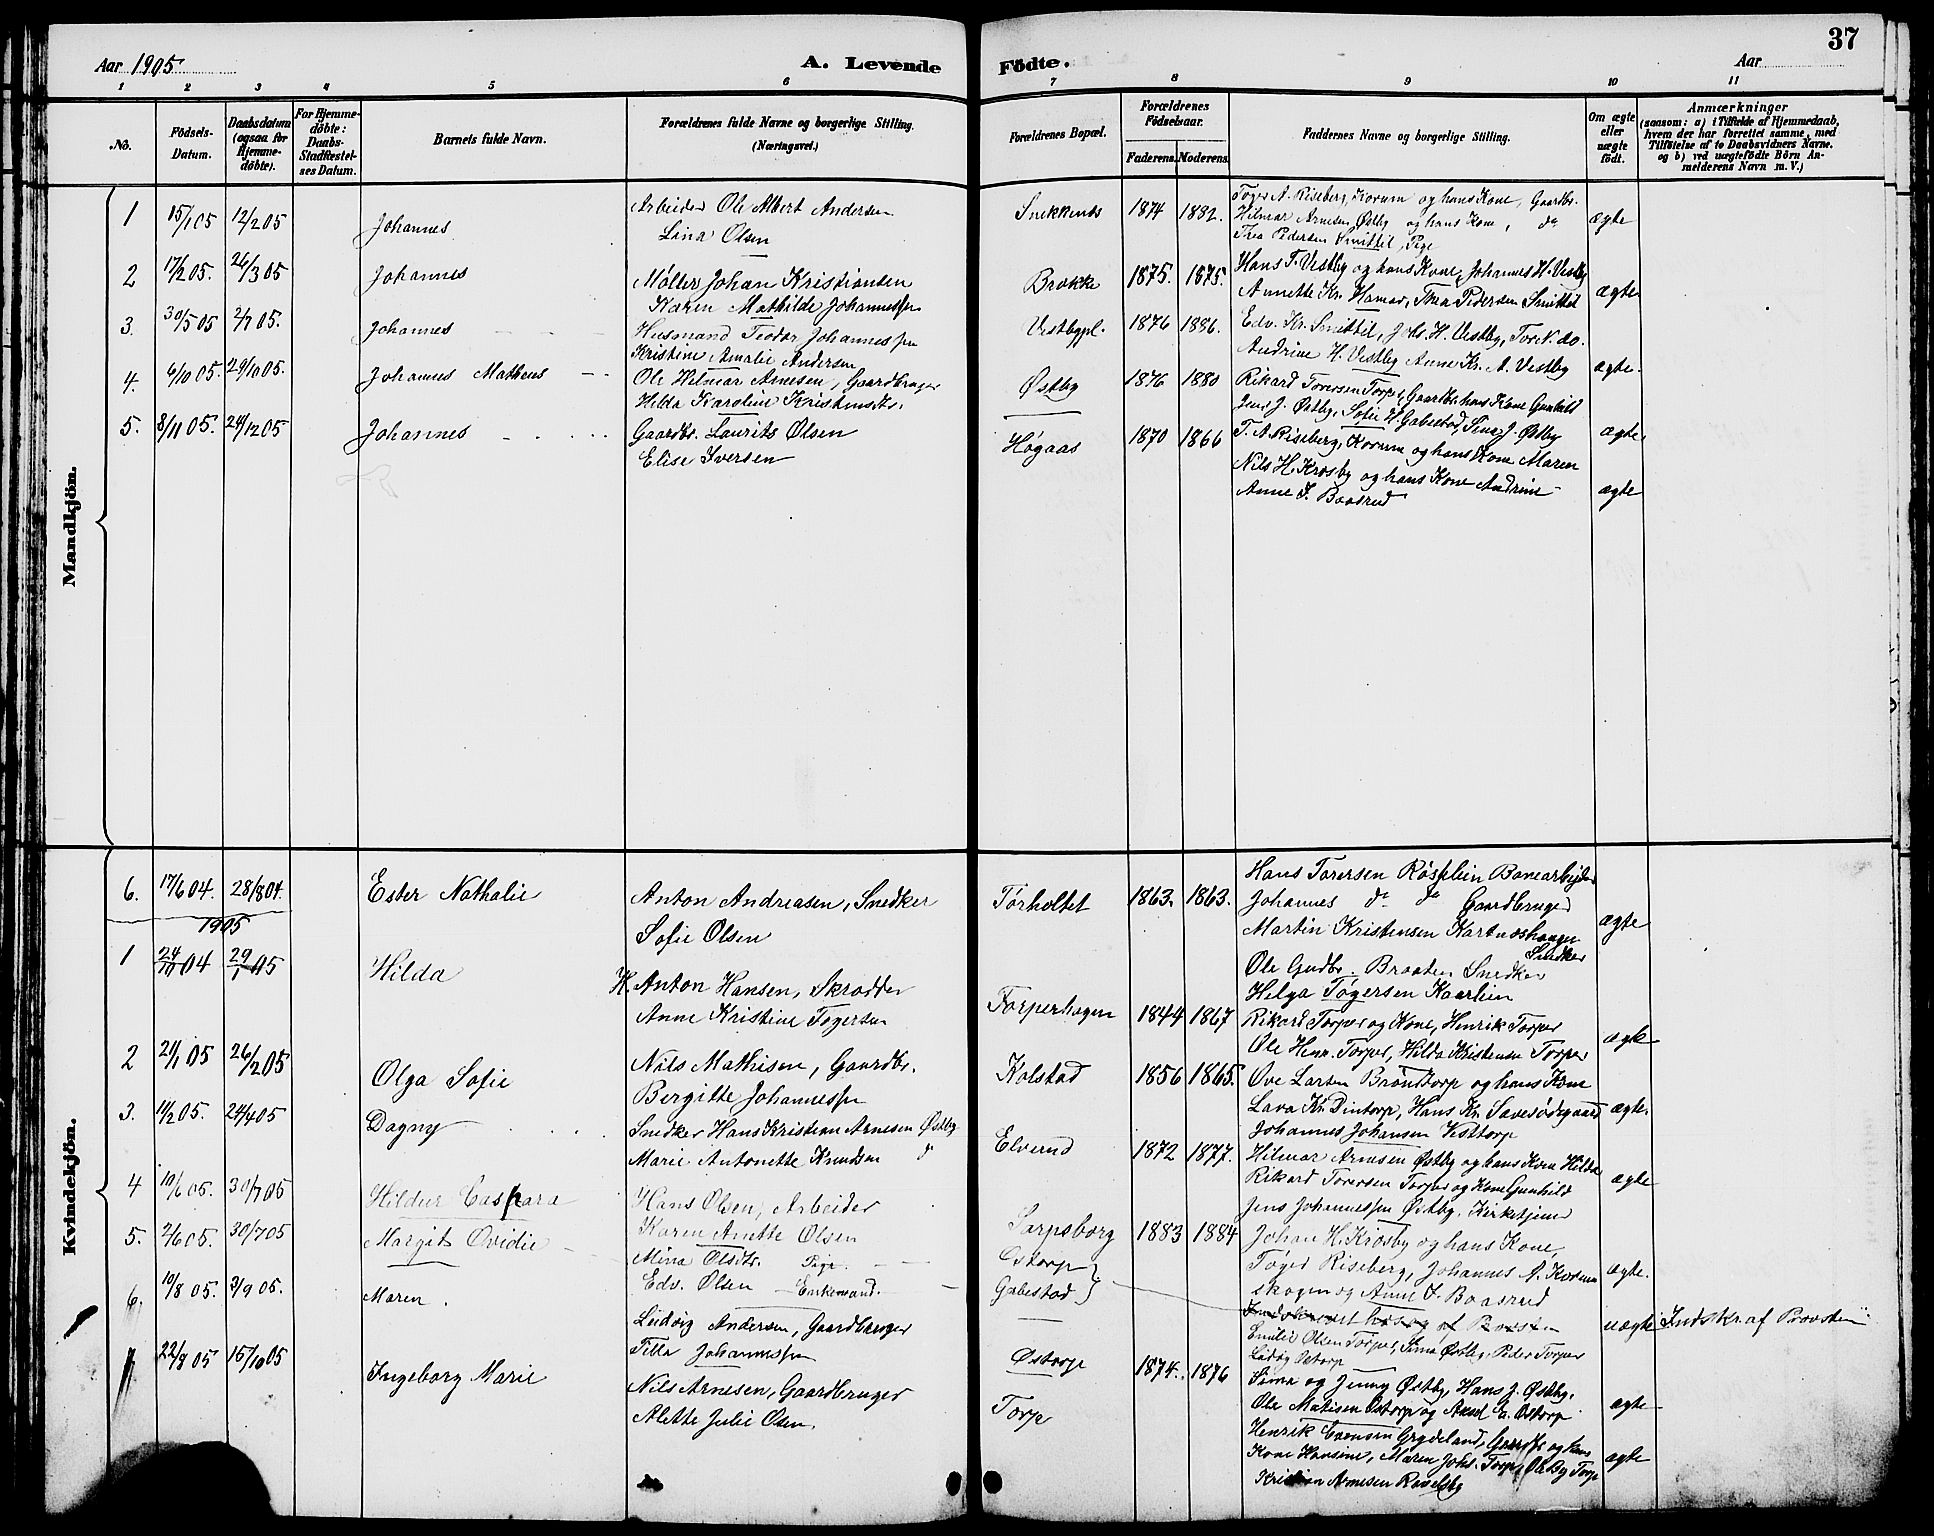 Aar 1905
A. Levende
Födte.
Aar
37
1 2 3 4 5 6 7 8 9 10 11
No.
Födsels-Datum.
Daabsdatum (ogsaa for Hjemme-döbte).
For Hjemme-döbte: Daabs-Stadfæstel-ses Datum.
Barnets fulde Navn.
Forældrenes fulde Navne og borgerlige Stilling.
(Næringsvei.)
Forældrenes Bopæl.
Forældrenes Födselsaar.
Faderens. Moderens.
Faddernes Navne og borgerlige Stilling.
Om ægte eller uægte födt.
Anmærkninger
(saasom: a) i Tilfælde af Hjemmedaab,
hvem der har forrettet samme, med
Tilföielse af to Daabsvidners Navne.
og b) ved uægtefödte Börn An-
melderens Navn m. V.)
Mandkjön.
1 15/1 05 12/2 05 Johannes
Arbeider Ole Albert Andersen
Lina Olsen
Snekkenes 1874 1882.
Tøger A. Riseberg, Korum og hans Kone, Gaardbr.
Hilmar Arnesen Østby og hans Kone, do
Thea Pedersen Smittil, Pige
ægte
2 17/2 05. 26/3 05 Johannes
Møller Johan Kristiansen
Karen Mathilde Johannessen
Brekke 1875. 1875.
Hans T. Vestby og hans Kone, Johannes H. Vestby
Annette Kr. Hamar, Thea Pedersen Smittil
ægte
3. 30/5 05 2/7 05. Johannes
Husmand Teodor Johannessen
Kristine Amalie Andersen
Vestbypl. 1876 1886.
Edv. Kr. Smittil, Johs. H. Vestby, Tor N. do.
Andrine H. Vestby Anne Kr. A. Vestby
ægte.
4. 6/10 05. 29/10 05. Johannes Matheus
Ole Hilmar Arnesen, Gaardbruger
Hilda Karoline Kristensdtr.
Østby 1876 1880
Rikard Toresen Torper, Gaardbr. hans Kone Gunhild
Jens J. Østby, Sofie H. Gabestad, Sina J. Østby
ægte
5. 8/11 05. 24/12 05 Johannes
Gaardbr. Laurits Olsen
Elise Iversen
Høgaas 1870 1866
T. A. Riseberg, Korum og hans Kone Maren
Nils H. Krosby og hans Kone Andrine
Anne I. Baasrud
ægte
Kvindekjön.
6. 17/6 04. 28/8 04. Ester Nathalie
Anton Andreasen, Snedker
Sofie Olsen
Tørholtet 1863. 1863.
Hans Toresen Røsslien Banearbejder
Johannes do do Gaardbruger
Martin Kristensen
Snedker
Ole Gudbr. Braaten Snedker
Helga Tøgersen Kaarlien
ægte
1905
1 24/10 04 29/1 05 Hilda
H. Anton Hansen, Skrædder
Anne Kristine Tøgersen
Torperhagen 1844 1867
Rikard Torper og Kone, Henrik Torper
Ole Henr. Torper, Hilda Kristensen Torper
ægte
2 21/1 05 26/2 05 Olga Sofie
Nils Mathisen, Gaardbr.
Bergitte Johannessen
Kolstad 1856 1865.
Ove Larsen Brøndtorp og hans Kone
Lava Kr. Dintorp, Hans Kr. Savesødegaard
Johannes Johansen Vesttorp
ægte.
3. 11/2 05. 24/4 05 Dagny
Snedker Hans Kristian Arnesen Østby
Marie Antonette Knudsen
Elverud 1872 1877.
Hilmar Arnesen Østby og hans Kone Hilda
Rikard Toresen Torper og Kone Gunhild
Jens Johannessen Østby, Kirketjener
ægte
4 10/6 05. 30/7 05 Hildur Caspara
Hans Olsen, Arbeider
Karen Anette Olsen
Sarpsborg 1883 1884
Johan H. Krosby og hans Kone,
Tøger Riseberg, Johannes A. Korum
skogen og Anne I. Baasrud
ægte.
5. 2/6 05. 30/7 05 Margit Ovidie
Mina Olsdtr. Pige.
Edv. Olsen Enkemand.
Ostorp
Gabestad
uægte Indskr. af Provsten
Emilie Olsen Torper, Sina Østby, Peder Torper
Ludvig Ostorp
6. 10/8 05. 3/9 05. Maren.
Ludvig Andersen, Gaardbruger
Tilla Johannessen
Østorp 1874. 1876
Sina og Jenny Østby, Hans J. Østby.
Ole Matisen Ostorp og Aksel E. Ostorp
ægte
22/8 05 15/10 05 Ingeborg Marie
Nils Arnesen, Gaardbruger
Alette Julie Olsen
Torp
Henrik Evensen Grydeland, Gaardbr. og hans
Kone Hansine, Maren Johs. Torp, Ole By Torp
Kristian Arnesen
ægte